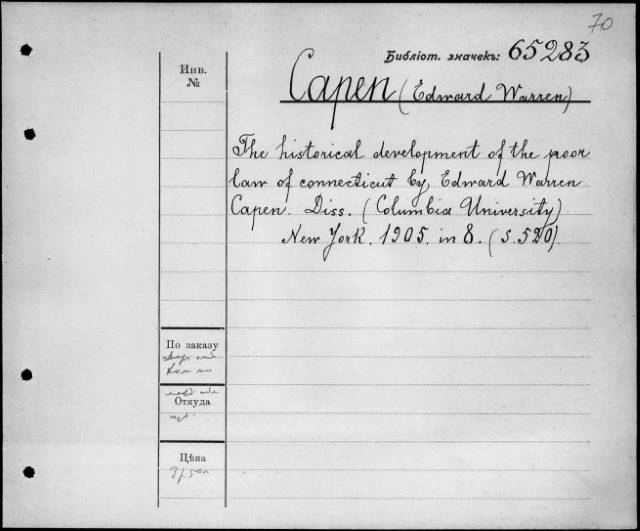 70
Библіот. значекъ: 65283
Инв.
№
Capen (Edward Warren)
The historical development of the poor
law of connecticut by Edward Warren
Capen. Diss. (Columbia University)
New York. 1905. in 8. (S. 520).
По заказу
Откуда
Цѣна